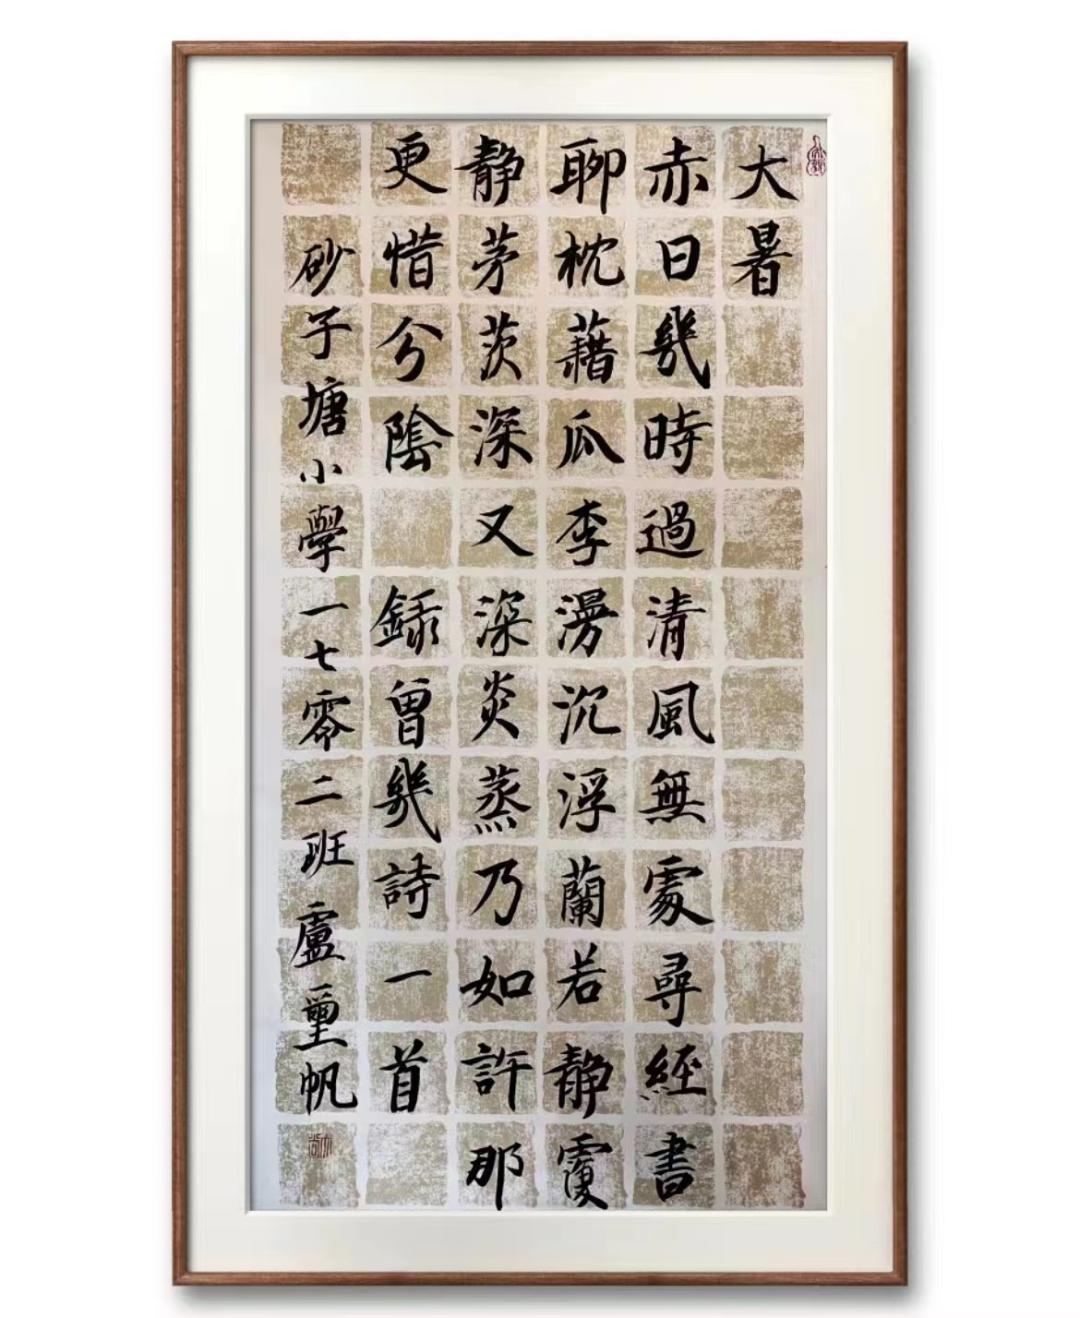 大暑
赤日幾時過清風無處尋經書
聊枕藉瓜李漫沉浮蘭若静覆
静茅茨深又深炎蒸乃如許那
更惜分陰 錄曾幾詩一首
砂子塘小學一七零二班盧璽帆